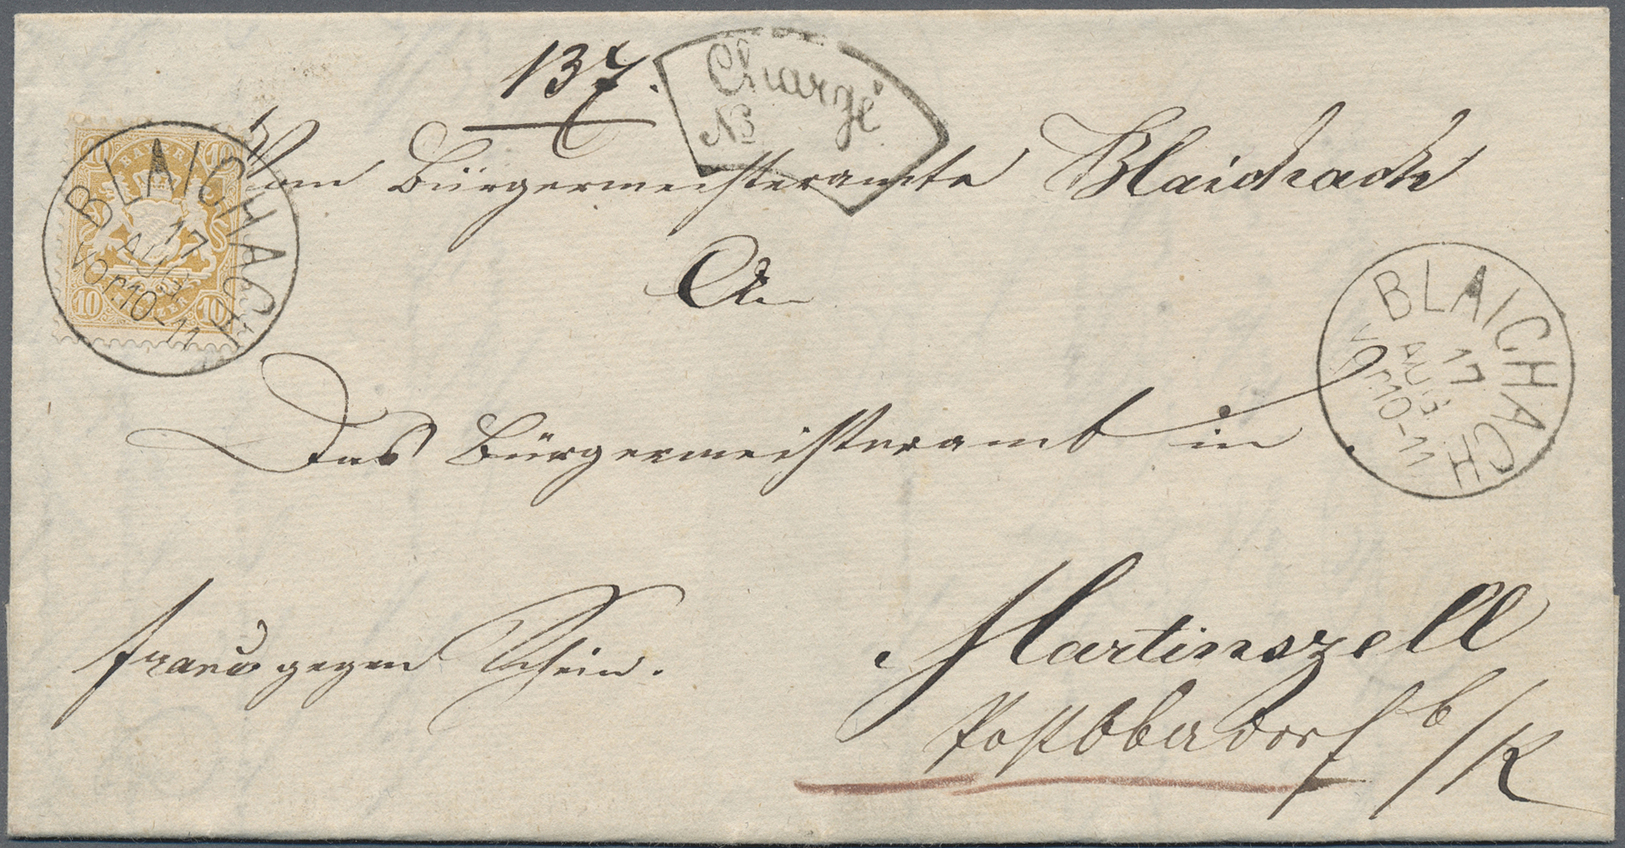 137.
Chargé
No
Vom Bürgermeisteramte Blaichach
An
Das Bürgermeisteramt in
Martinszell
Post Oberdorf b/K
franco gegen Schein.
10 BAYERN 10
10 10
BLAICHACH
17
AUG
Vor.10-11
BLAICHACH
17
AUG
Vorm10-11